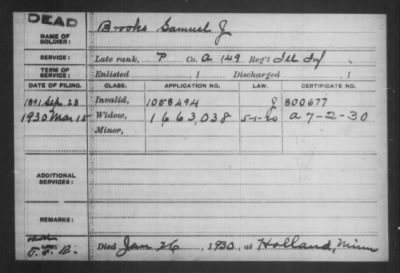 DEAD
NAME OF SOLDIER: Brooks Samuel J
SERVICE: Late rank, P Co. A 149 Reg't Ill Inf
TERM OF SERVICE: Enlisted , 1 Discharged , 1
DATE OF FILING. CLASS. APPLICATION NO. LAW. CERTIFICATE NO.
1891 Sep. 23 Invalid, 1058494 J 800677
1930 Mar 15 Widow, 1663,038 5-1-20 a 7-2-30
Minor,
ADDITIONAL SERVICES:
REMARKS:
Died Jan 26, 1930, at Holland, Minn